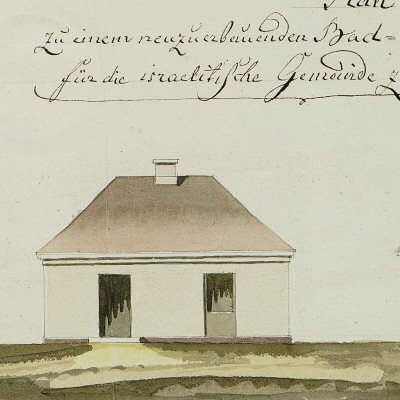 Plan
zu einem neuzuerbauenden Bad=
für die israelitische Gemeinde z